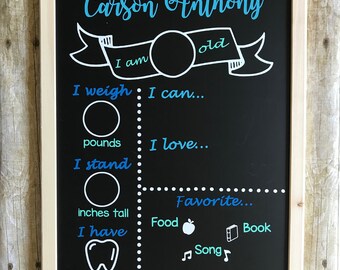 Carson Anthony
I am old
I weigh
I can...
pounds
I love...
I stand
inches tall
Favorite...
Food
Book
I have
Song